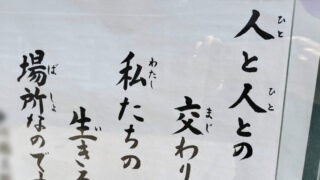 人と人との
交わり
私たちの
生きる
場所なので